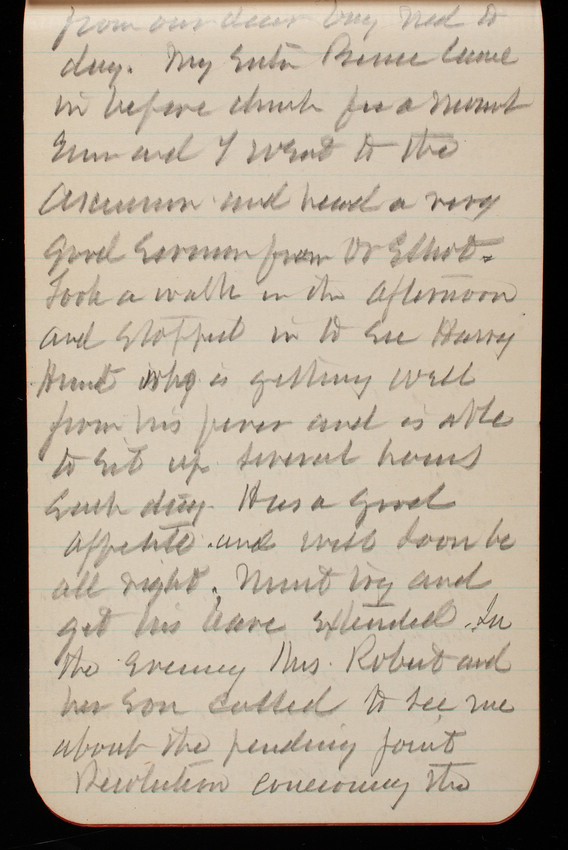 from our dear boy Ned to
day. My Sister Bernie came
in before church for a moment
Emma and I went to the
Ascension and heard a very
good Sermon from Dr Elliot.
Took a walk in the afternoon
and stopped in to see Harry
Hunt who is getting well
from his fever and is able
to sit up several hours
each day. Has a good
appetite and will soon be
all right. Must try and
get his leave extended. In
the Evening Mrs. Robert and
her Son called to see me
about the pending joint
Resolution concerning the